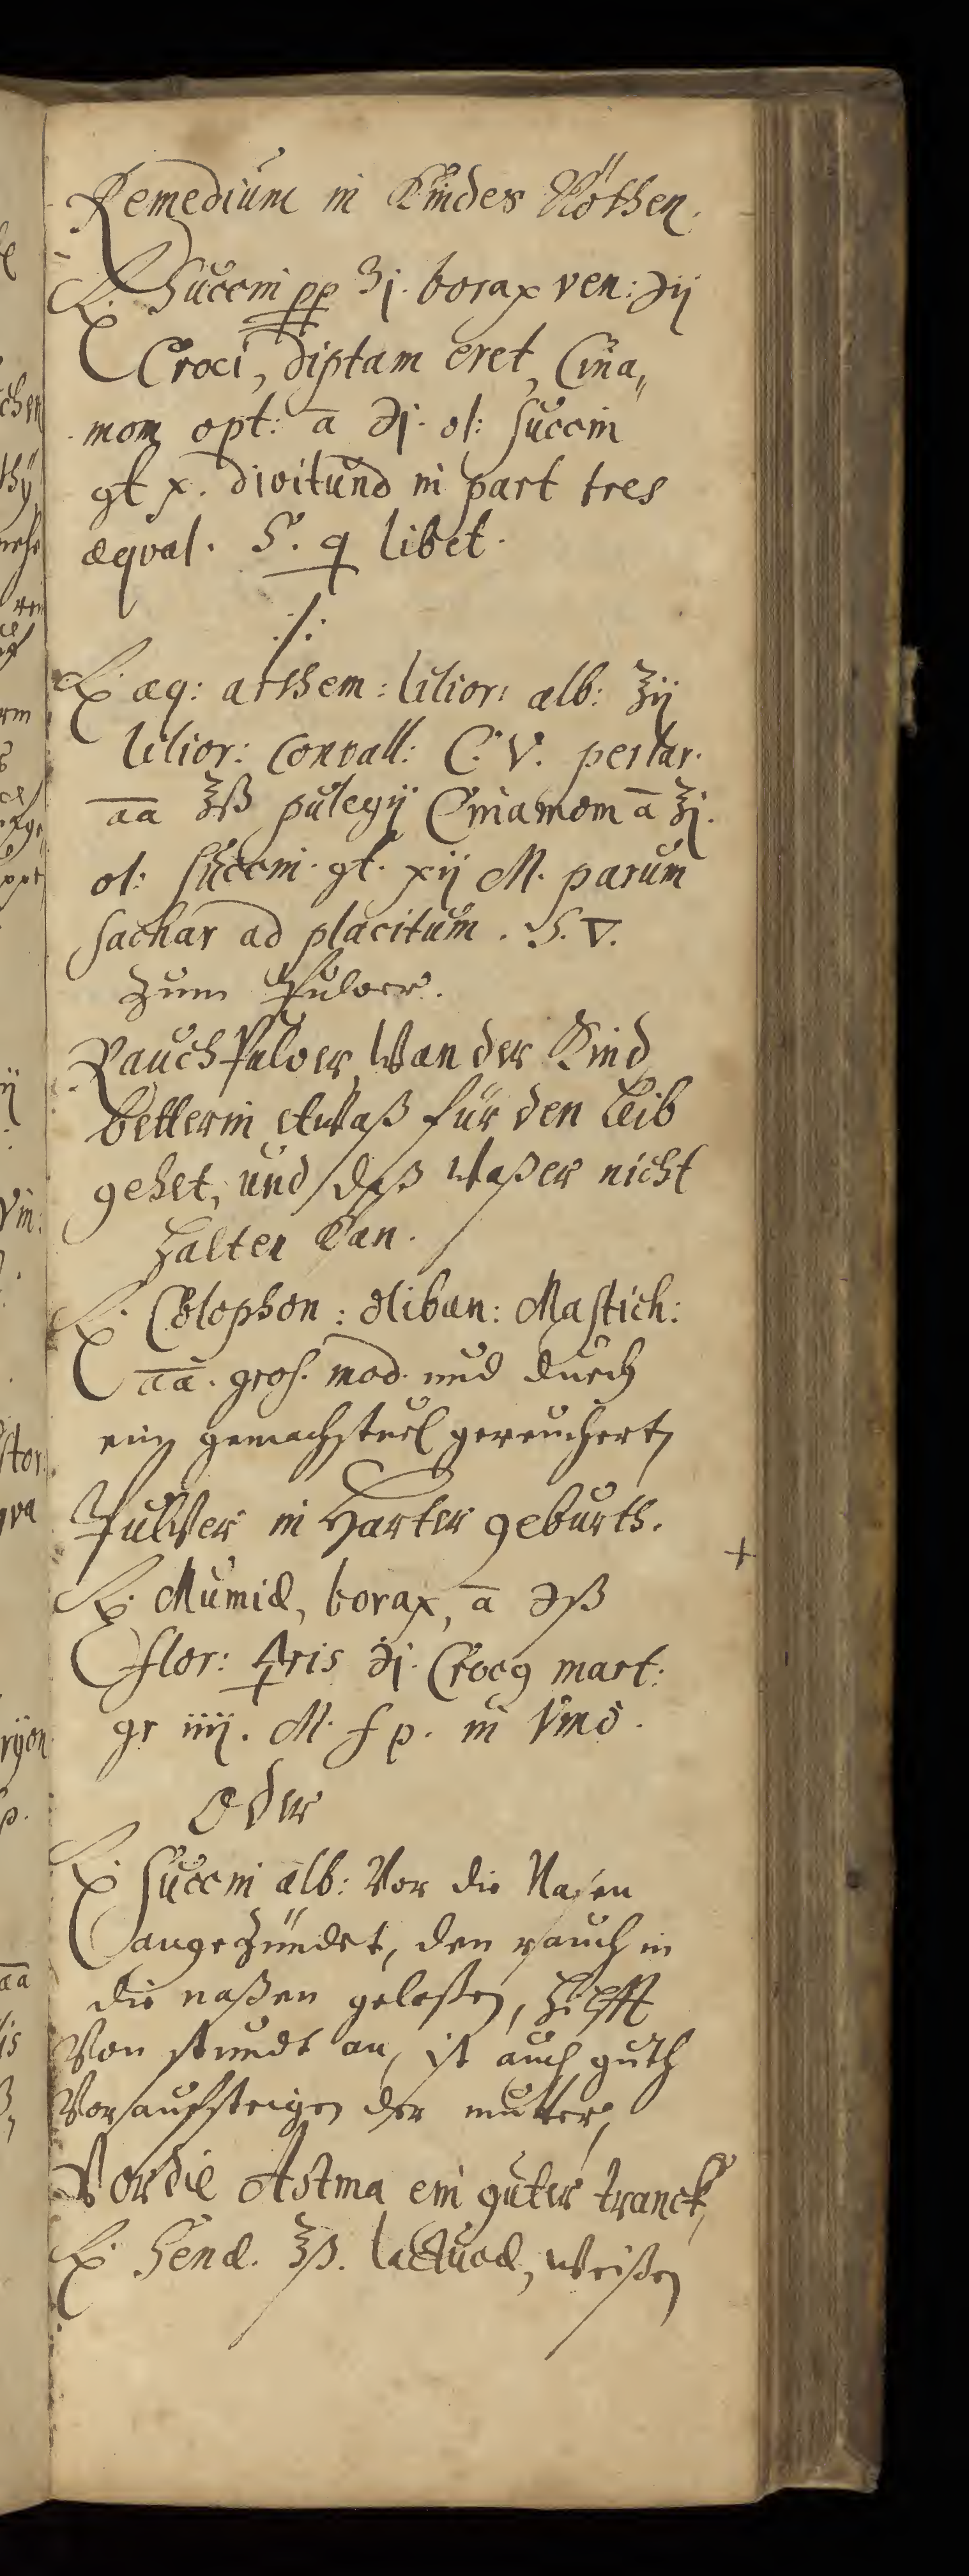 Remedium in Kindes Nöthen.
℞. Succini pp ʒj. borax ven: ℈ij
Croci, diptam cret, Cina„
mom opt: ā ℈j. ol: succin
gt x. dividtund in part tres
æqval. S. q libet.
./.
℞. aq: arthem: lilior: alb: ℥ij
lilior: convall: C. V. perlar.
āā ℥ß pulegij Cinamom ā ℥j.
ol: succini. gt. xij M. parum
sachar ad placitum. S. V.
zum Pulver.
Rauch Pulver, Wan der Kind
betterin etwaß für den Leib
gehet, und daß Waßer nicht
halten kan.
℞. Colophon: Oliban: Mastich:
āā. gros. mod. und durch
ein gemachstuel gereuchert,
Pulver in Harter geburth.
℞. Mumiæ, borax, ā ℈ß
flor: 🜍ris ℈j. Croc9 mart:
gr iiij. M. f p. in Vino.
Oder
℞. Succini alb: Vor die Nasen
angezündet, den rauch in
die naßen gelaßen, hilfft
Von stundt an, ist auch guth
Vor aufsteigen der mutter,
Vor die Astma ein guter tranck,
℞. Senæ. ℥ß. lactucæ, weißen